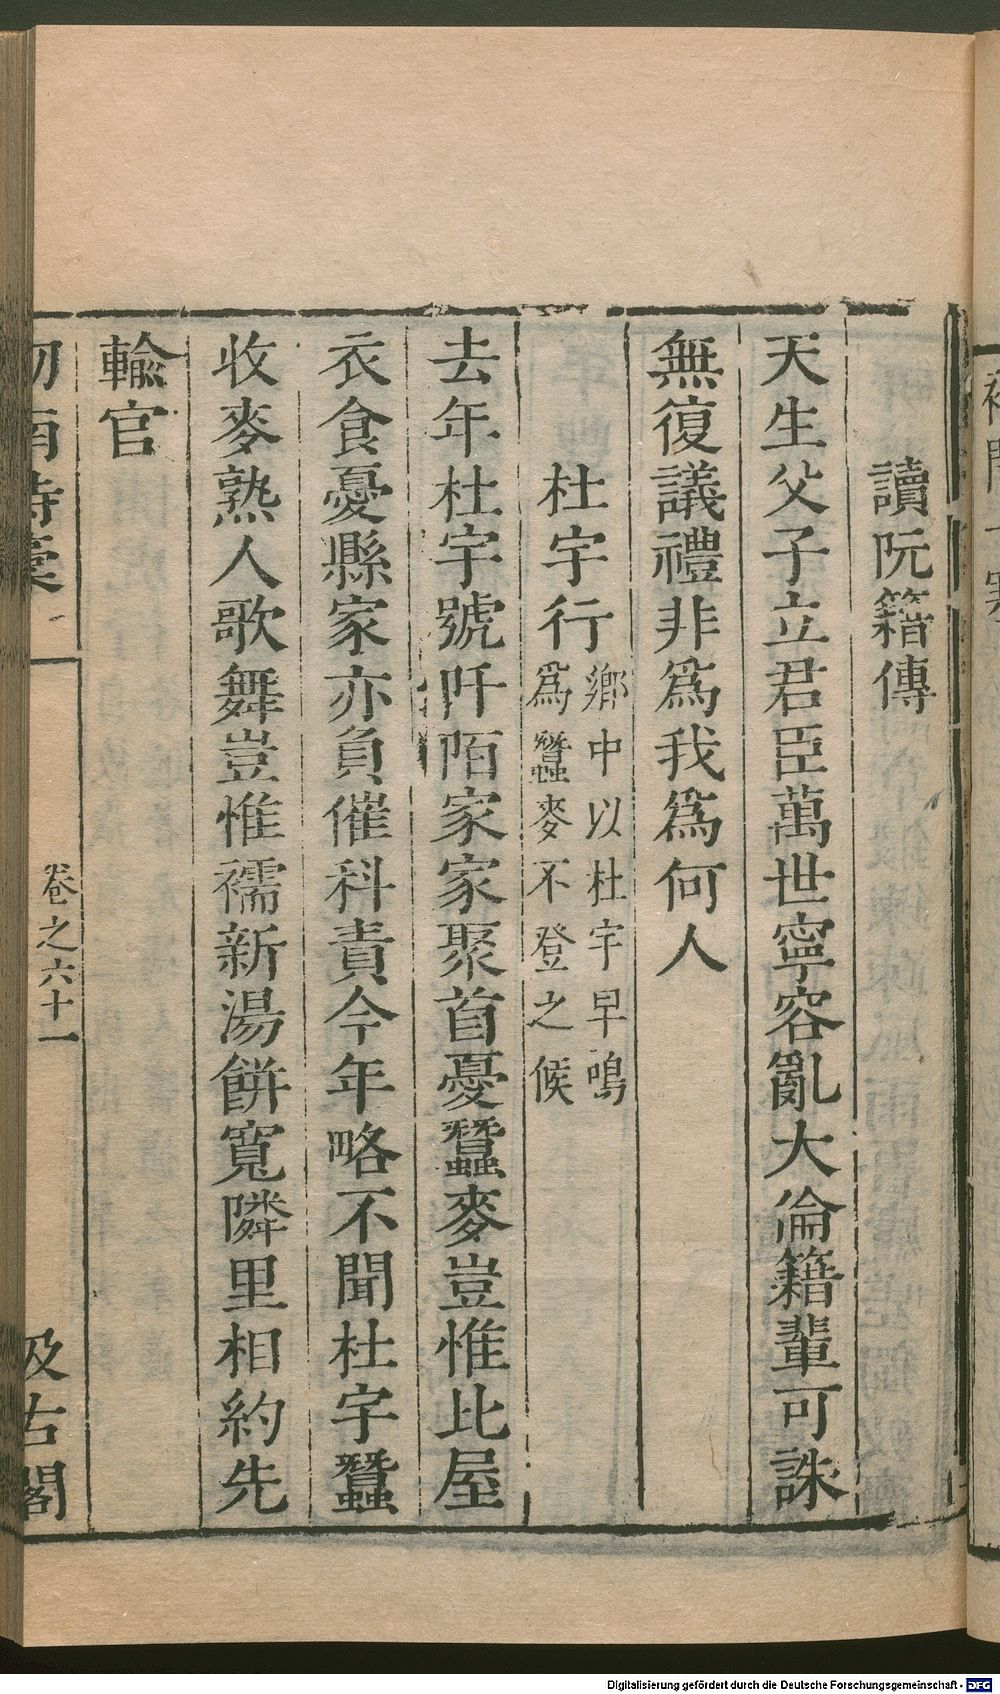 讀阮籍傳
天生父子立君臣萬世寧容亂大倫籍輩可誅
無復議禮非爲我爲何人
杜宇行鄉中以杜宇早鳴
爲蠶麥不登之候
去年杜宇號阡陌家家聚首憂蠶麥豈惟比屋
衣食憂縣家亦負催科責今年略不聞杜宇蠶
收麥熟人歌舞豈惟襦新湯餅寬隣里相約先
輸官
卷之六十一
汲古閣
Digitalisierung gefördert durch die Deutsche Forschungsgemeinschaft - DFG